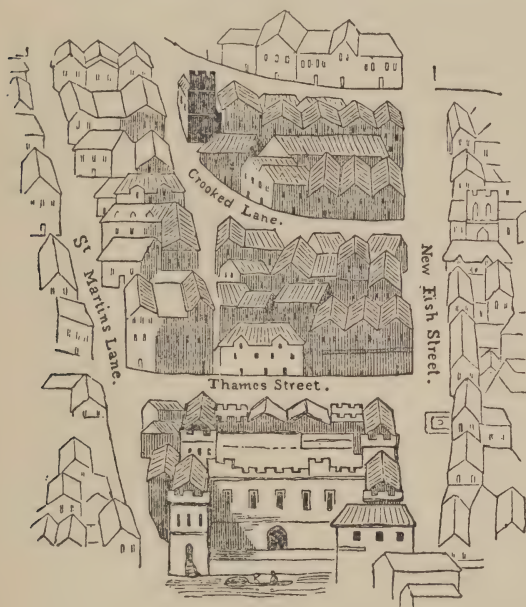 Crooked Lane.
St Martins Lane.
New Fish Street.
Thames Street.